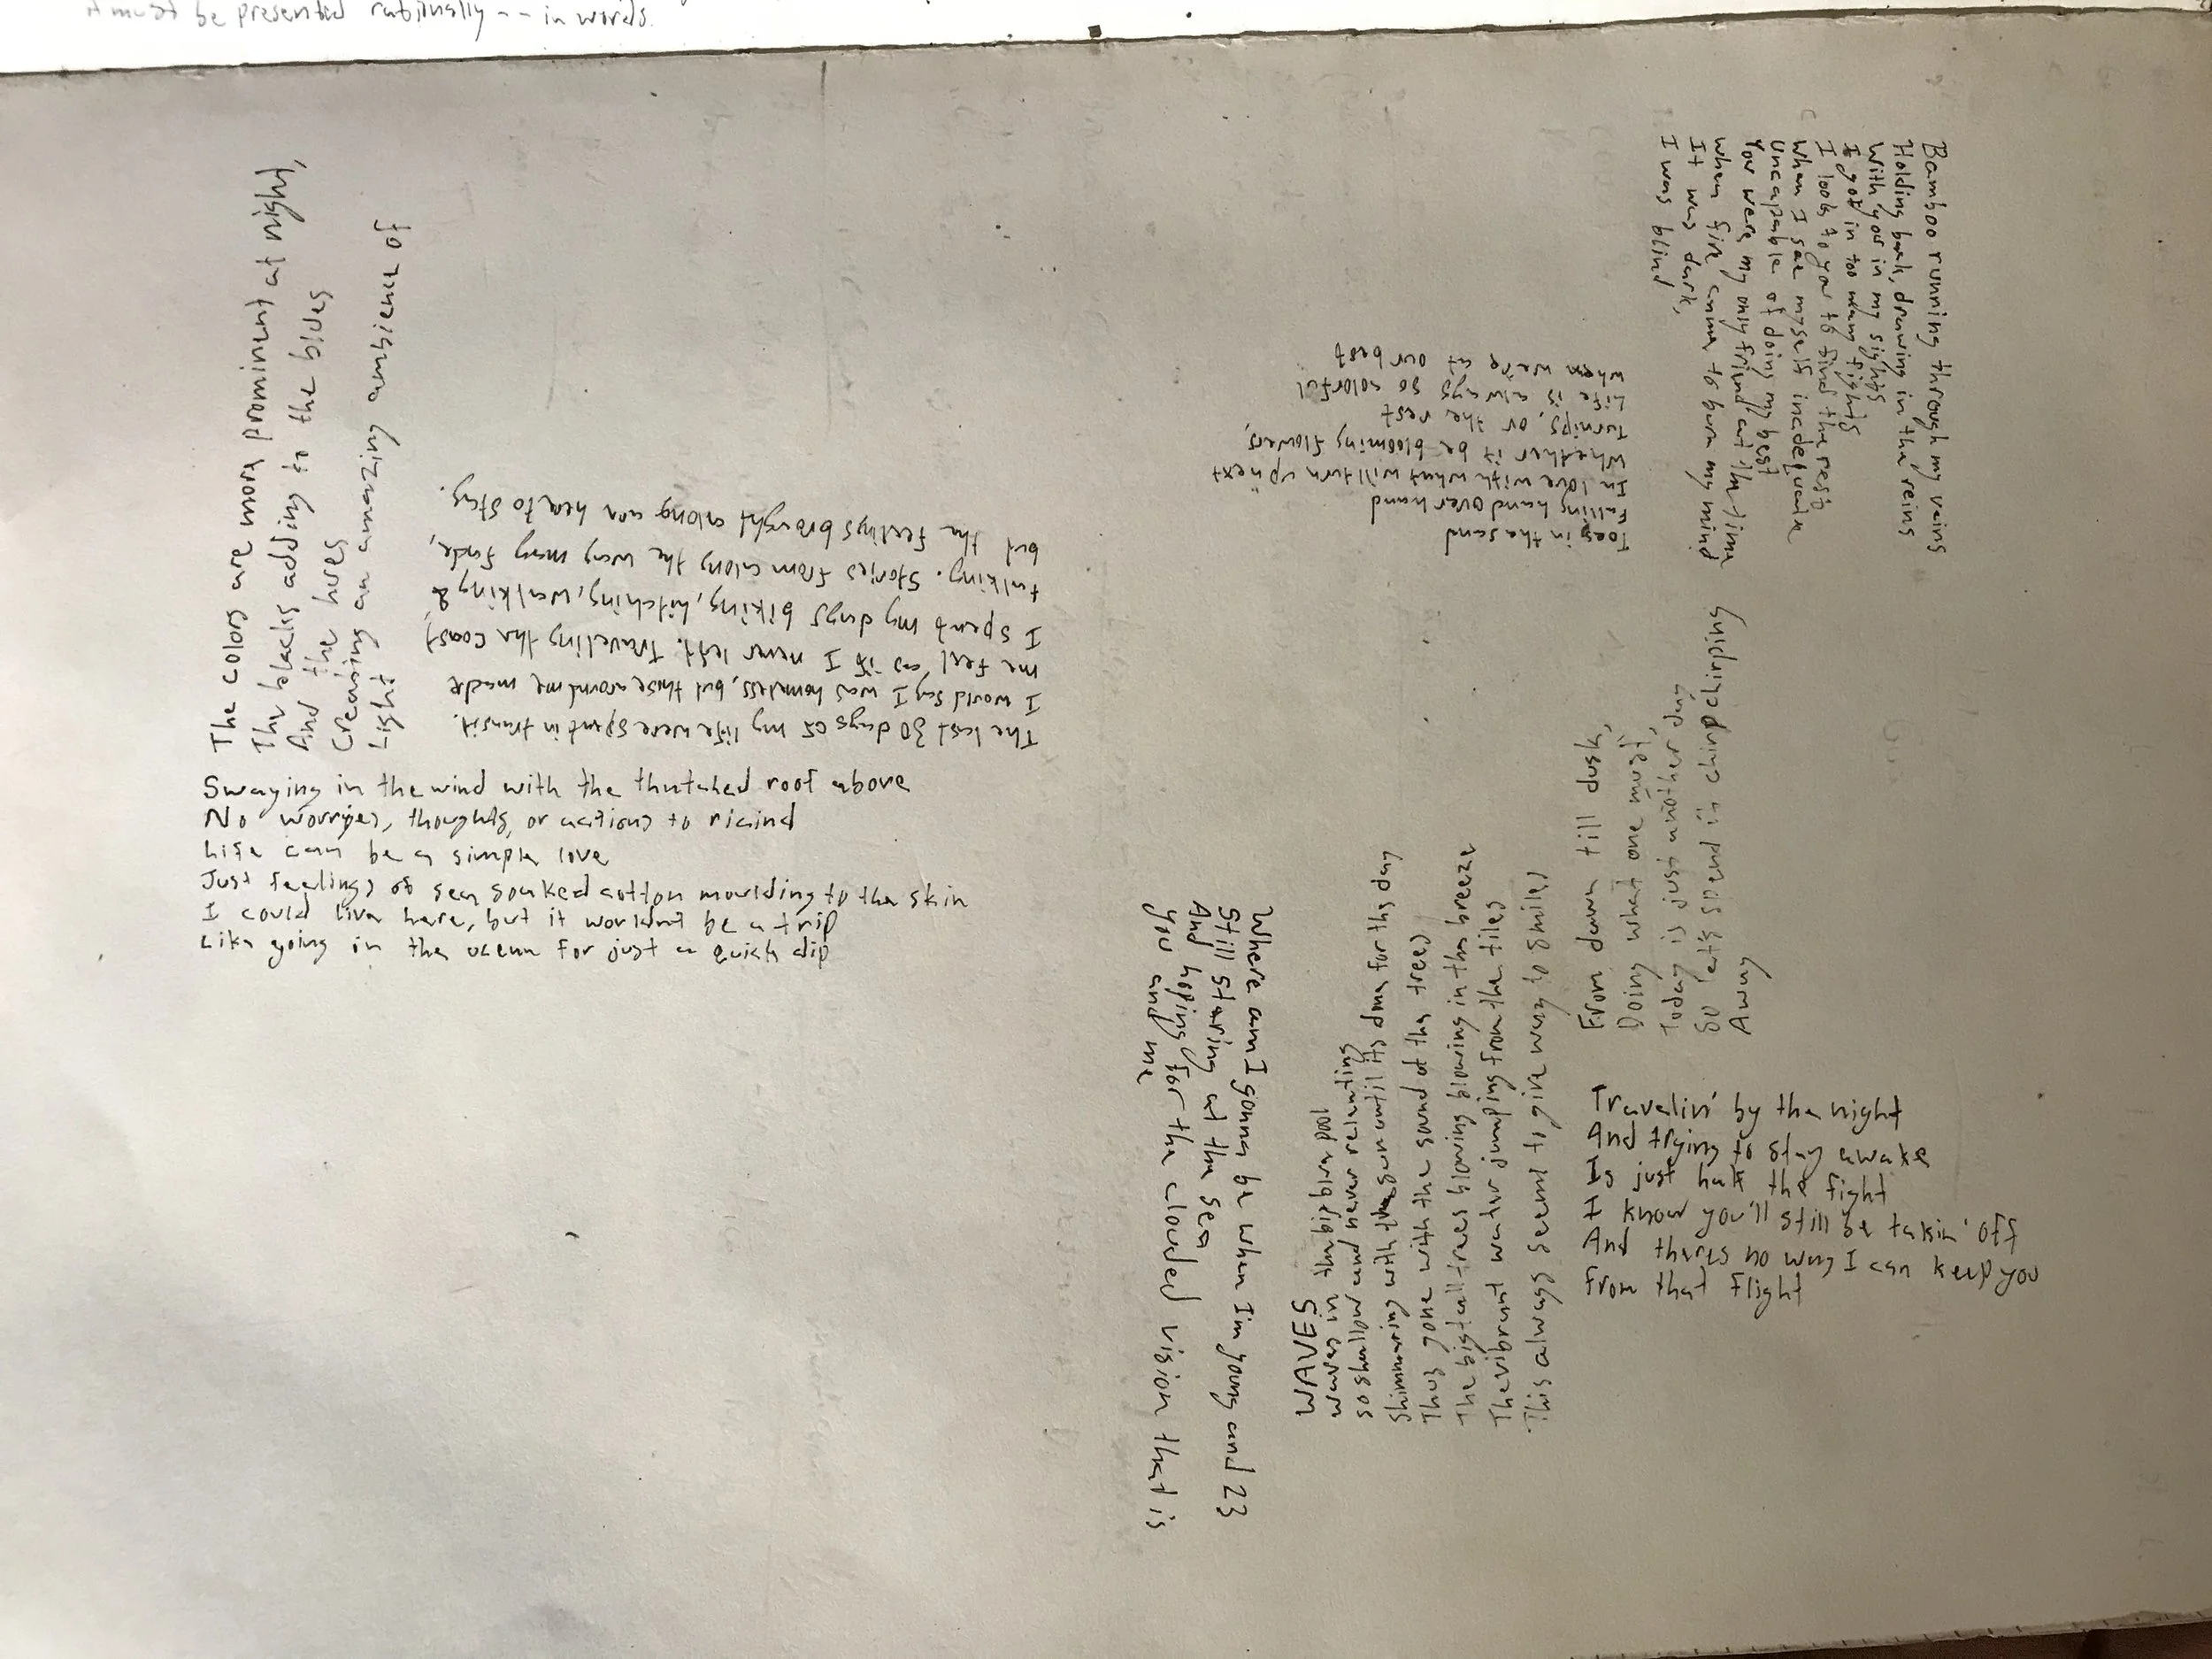 it must be presented rationally -- in words.
The colors are more prominent at night,
The blacks adding to the blues
And the hues
Creating an amazing ambience of
Light
The last 30 days of my life were spent in transit.
I would say I was homeless, but those around me made
me feel as if I never left. Traveling the coast,
I spent my days biking, hitching, walking &
talking. Stories from along the way may fade,
but the feelings brought along are here to stay.
Swaying in the wind with the thatched roof above
No worries, thoughts, or actions to
Life can be a simple love
Just feelings of sea soaked cotton moulding to the skin
I could live here, but it wouldn't be a trip
Like going in the ocean for just a quick dip
Bamboo running through my veins
Holding back, drawing in the reins
With you in my sights
I got in too many fights
I look to you to find the rest
When I see myself inadequate
Uncapable of doing my best
You were my only friend at the time
When fire came to burn my mind
It was dark,
I was blind
Toes in the sand
Falling hand over hand
In love with what will turn up next
Whether it be blooming flowers,
Turnips, or the rest
Life is always so colorful
when we're at our best
From dawn till dusk,
Doing what one must,
Today is just another day
So let's spend it chirp chirping
Away
Where am I gonna be when I'm young and 23
Still staring at the sea
And hoping for the clouded vision that is
you and me
WAVES
waves in the big blue pool
so shallow and never relenting
Shimmering with the sun until its done for the day
Thus gone with the sound of the trees
The big tall trees blowing blowing in the breeze
The vibrant water jumping from the tiles
This always seems to give way to smiles
Travelin' by the night
And trying to stay awake
Is just half the fight
I know you'll still be takin' off
And theres no way I can keep you
From that flight